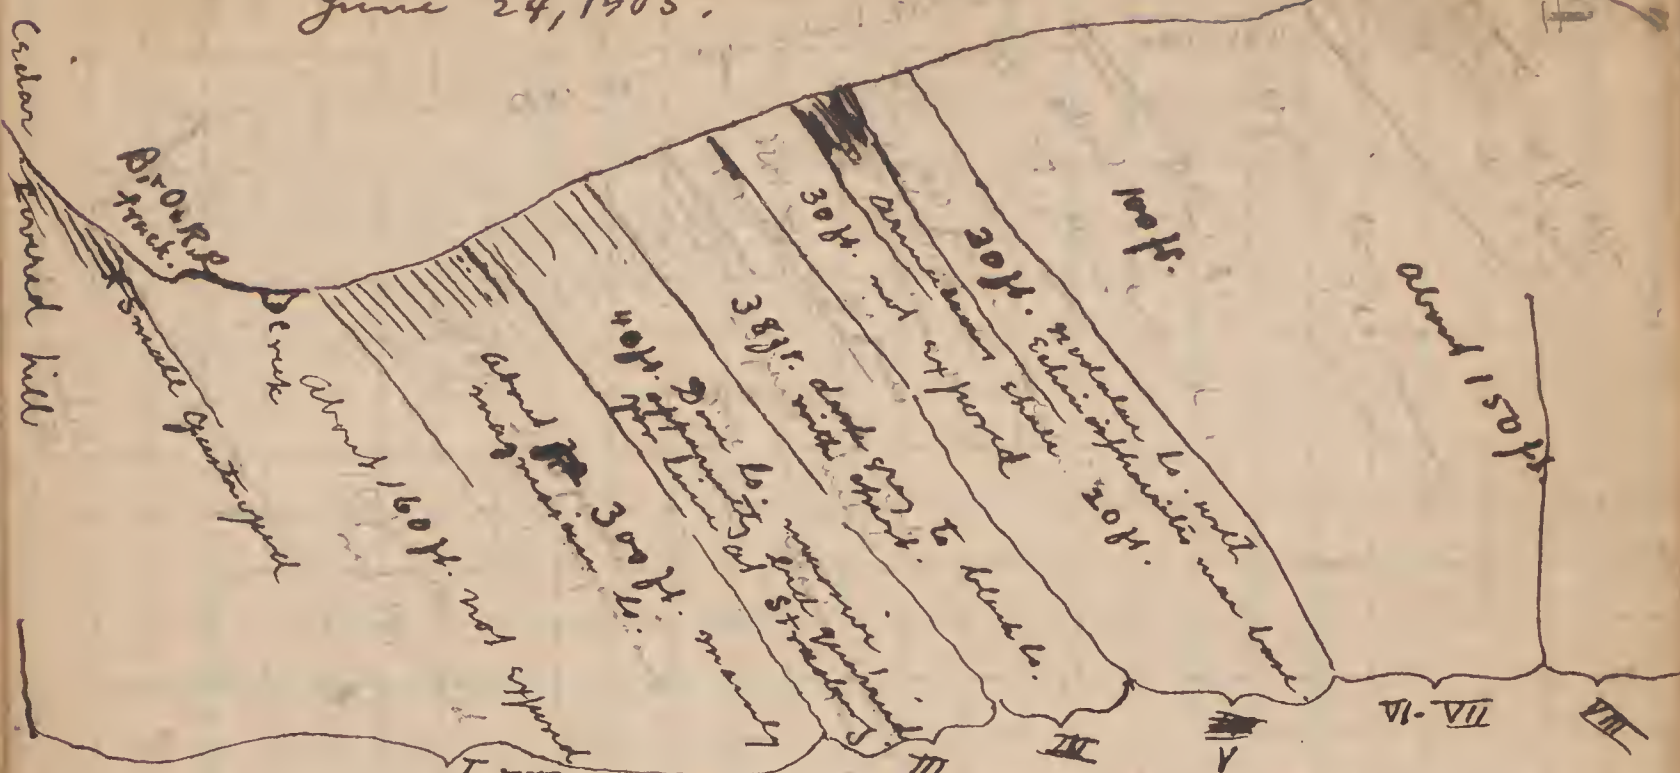 June 24, 1905.
Cedar covered hill
B. & O. R.R.
track.
Small quarry
Creek
About 160 ft. not exposed
about 300 ft. mainly
magnesian ls.
40 ft. Dove ls. massive
apparently
for lime at Strasburg
38 ft. dark gray to black ls.
with chert.
30 ft. not exposed
arenaceous shale 20 ft.
20 ft. nodular ls. with
Echinosphaerites near base.
100 ft.
about 150 ft.
I
II
III
V
VI-VII
VIII